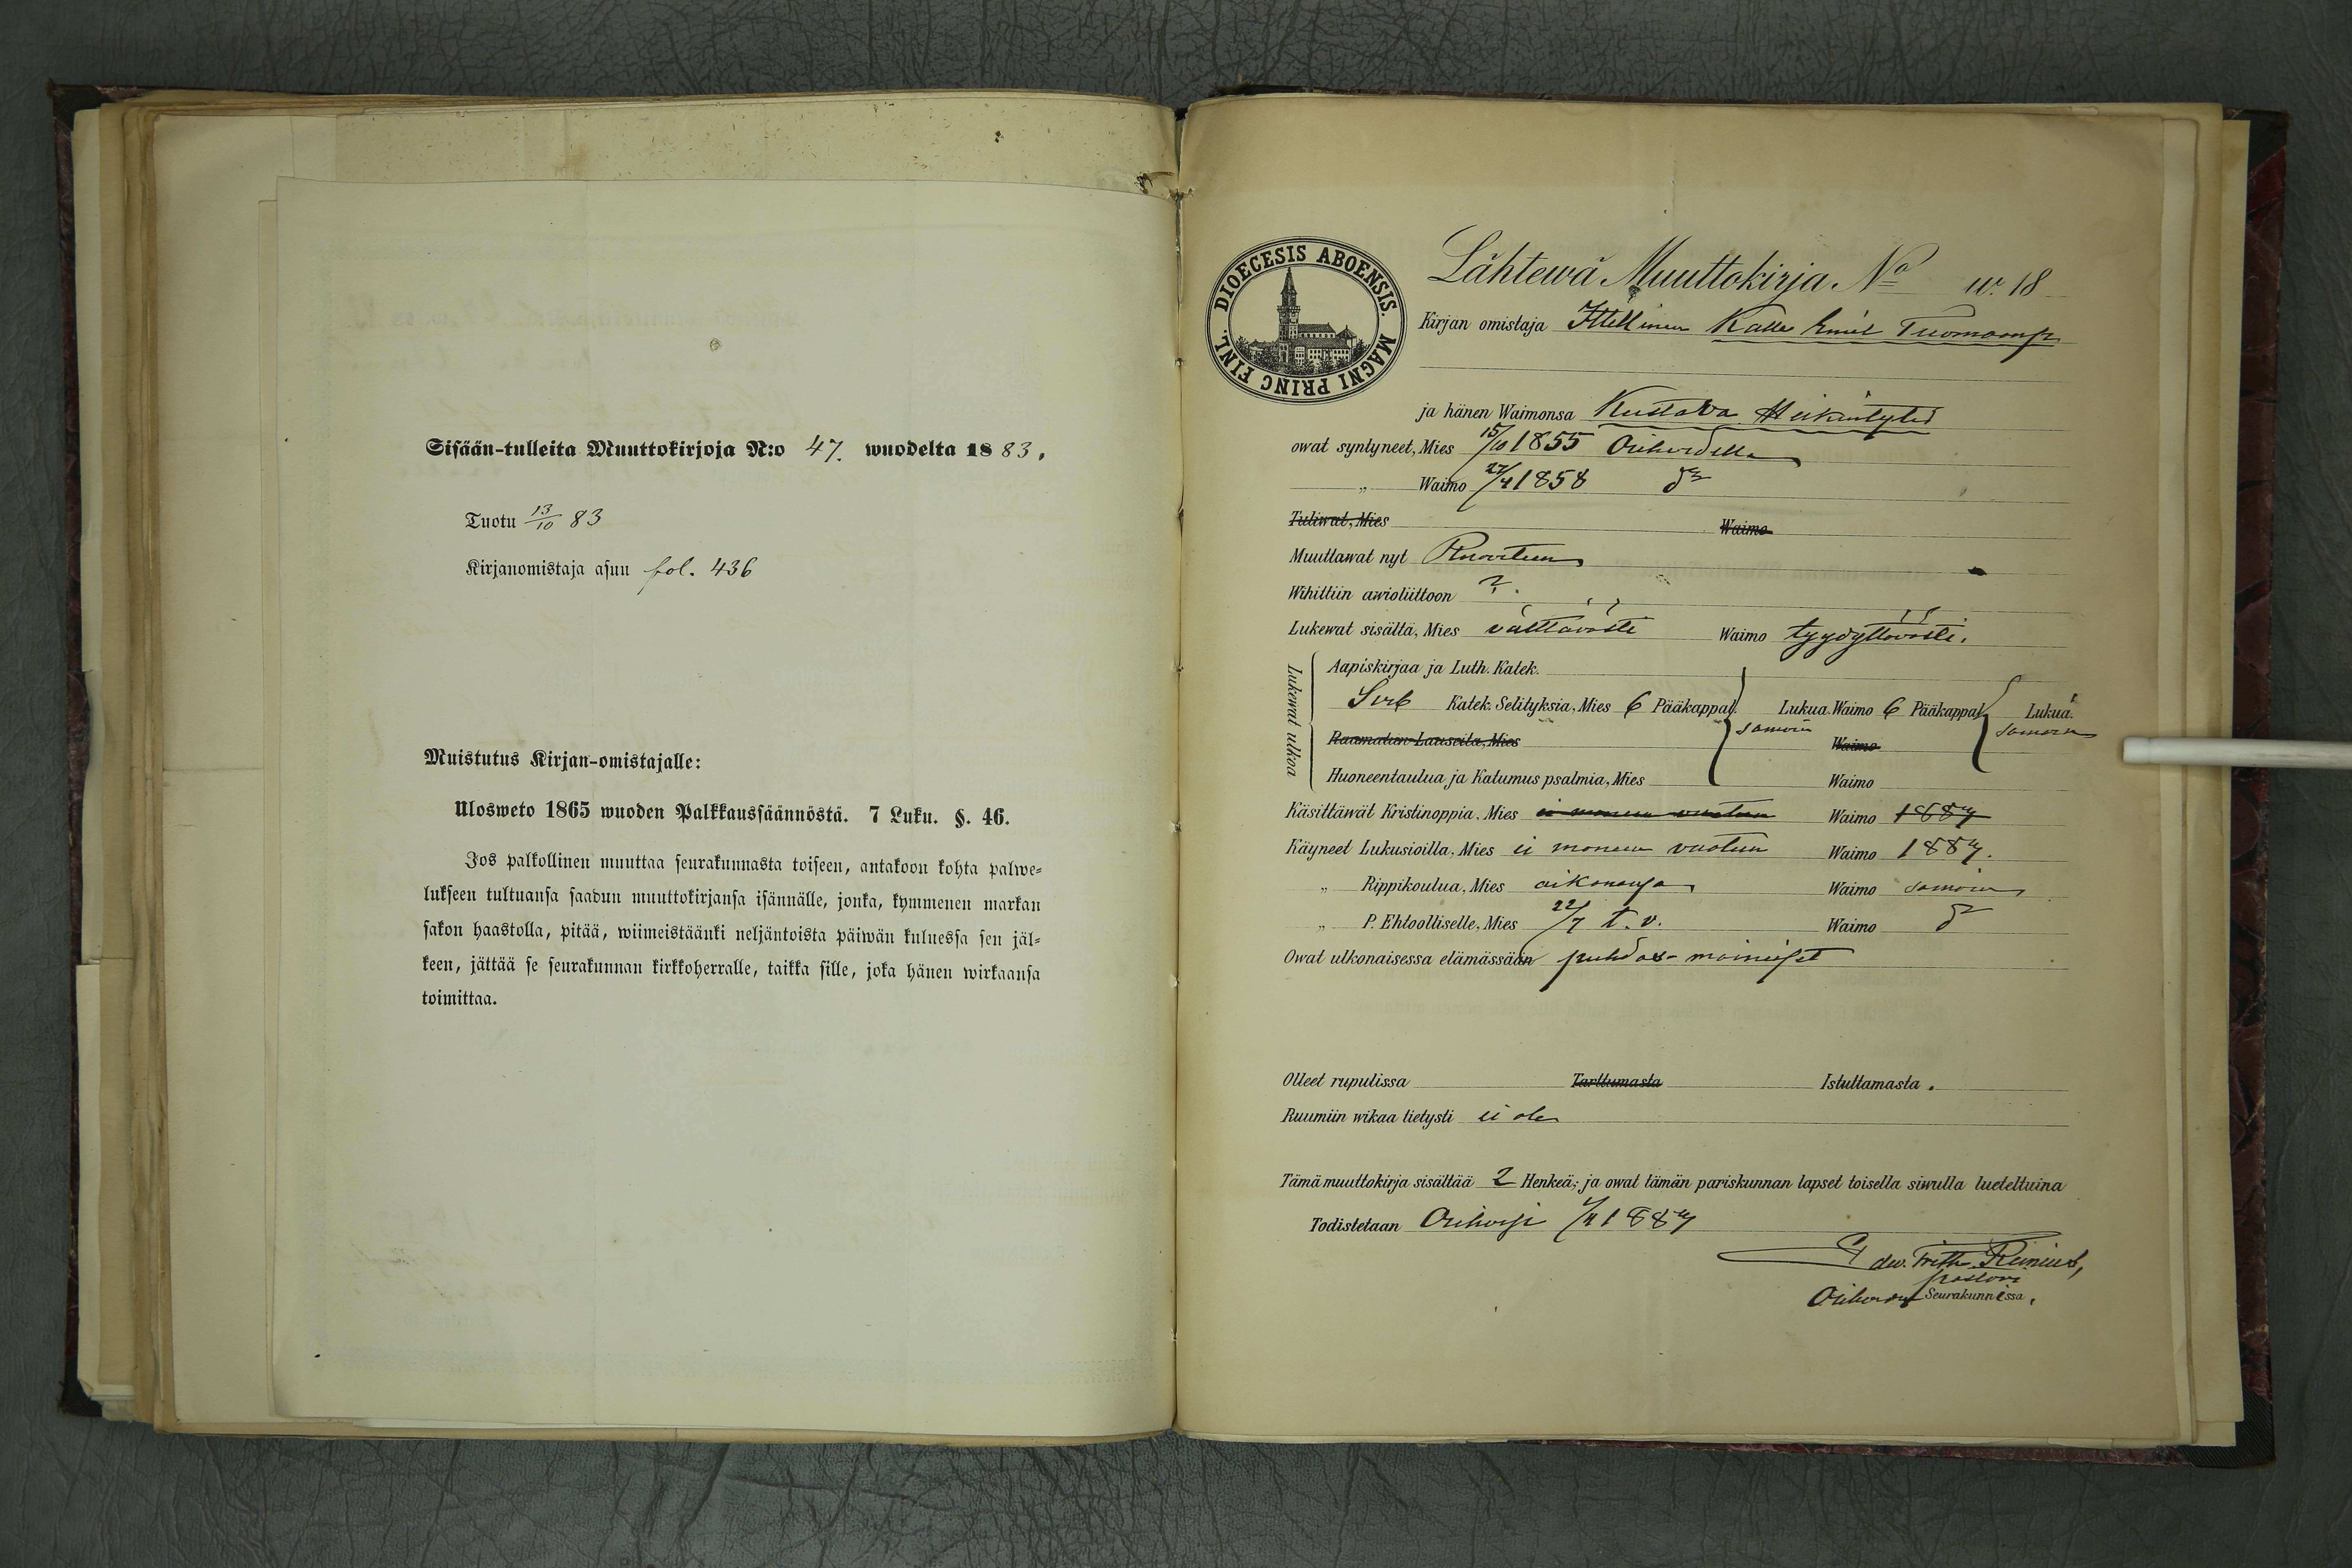 Sisään-tulleita Muuttokirjoja N:o 47. wuodelta 1883.
Tuotu 13/10 83
Kirjanomistaja asuu fol. 436
Muistutus Kirjan-omistajalle:
Ulosweto 1865 wuoden Palkkaussäännöstä. 7 Luku. §. 46.
Jos palkollinen muuttaa seurakunnasta toiseen, antakoon kohta palwe-
lukseen tultuansa saadun muuttokirjansa isännälle, jonka, kymmenen markan
sakon haastolla, pitää, wiimeistäänki neljäntoista päiwän kuluessa sen jäl-
keen, jättää se seurakunnan kirkkoherralle, taikka sille, joka hänen wirkaansa
toimittaa.
DIOECESIS ABOENSIS. MAGNI PRINC FINL.
Lähtewä Muuttokirja No w. 18
Kirjan omistaja Itellinen Kalle Emil Tuomaanp.
ja hänen Waimonsa Kustava Heikintytär
owat syntyneet, Mies 15/10 1855 Orihvedella
" Waimo 27/4 1858
Tuliwat, Mies Waimo
Muuttawat nyt Ruoveteen
Wihittiin awioliittoon ?.
Lukewat sisältä, Mies välttävästi Waimo tyydyttävästi.
Lukewat ulkoa
Aapiskirjaa ja Luth. Katek.
Svib Katek. Selityksia, Mies 6 Pääkappal. Lukua. Waimo 6 Pääkappal. Lukua.
samoin samoin
Raamatun Lauseita, Mies Waimo
Huoneentaulua ja Katumus psalmia, Mies Waimo
Käsittäwät Kristinoppia, Mies ei moneen vuoteen Waimo 1884
Käyneet Lukusioilla, Mies ei moneen vuoteen Waimo 1884.
" Rippikoulua, Mies aikonansa Waimo samoin
" P. Ehtoolliselle, Mies 22/7 t. v. Waimo
Owat ulkonaisessa elämässään puhdas-maineiset
Olleet rupulissa Tarttumasta Istuttamasta.
Ruumiin wikaa tietysti ei ole
Tämä muuttokirja sisältää 2 Henkeä; ja owat tämän pariskunnan lapset toisella siwulla lueteltuina
Todistetaan Orihvesi 1884
Edw. Frith. Reinius,
pastori
Orihveden Seurakunnissa.